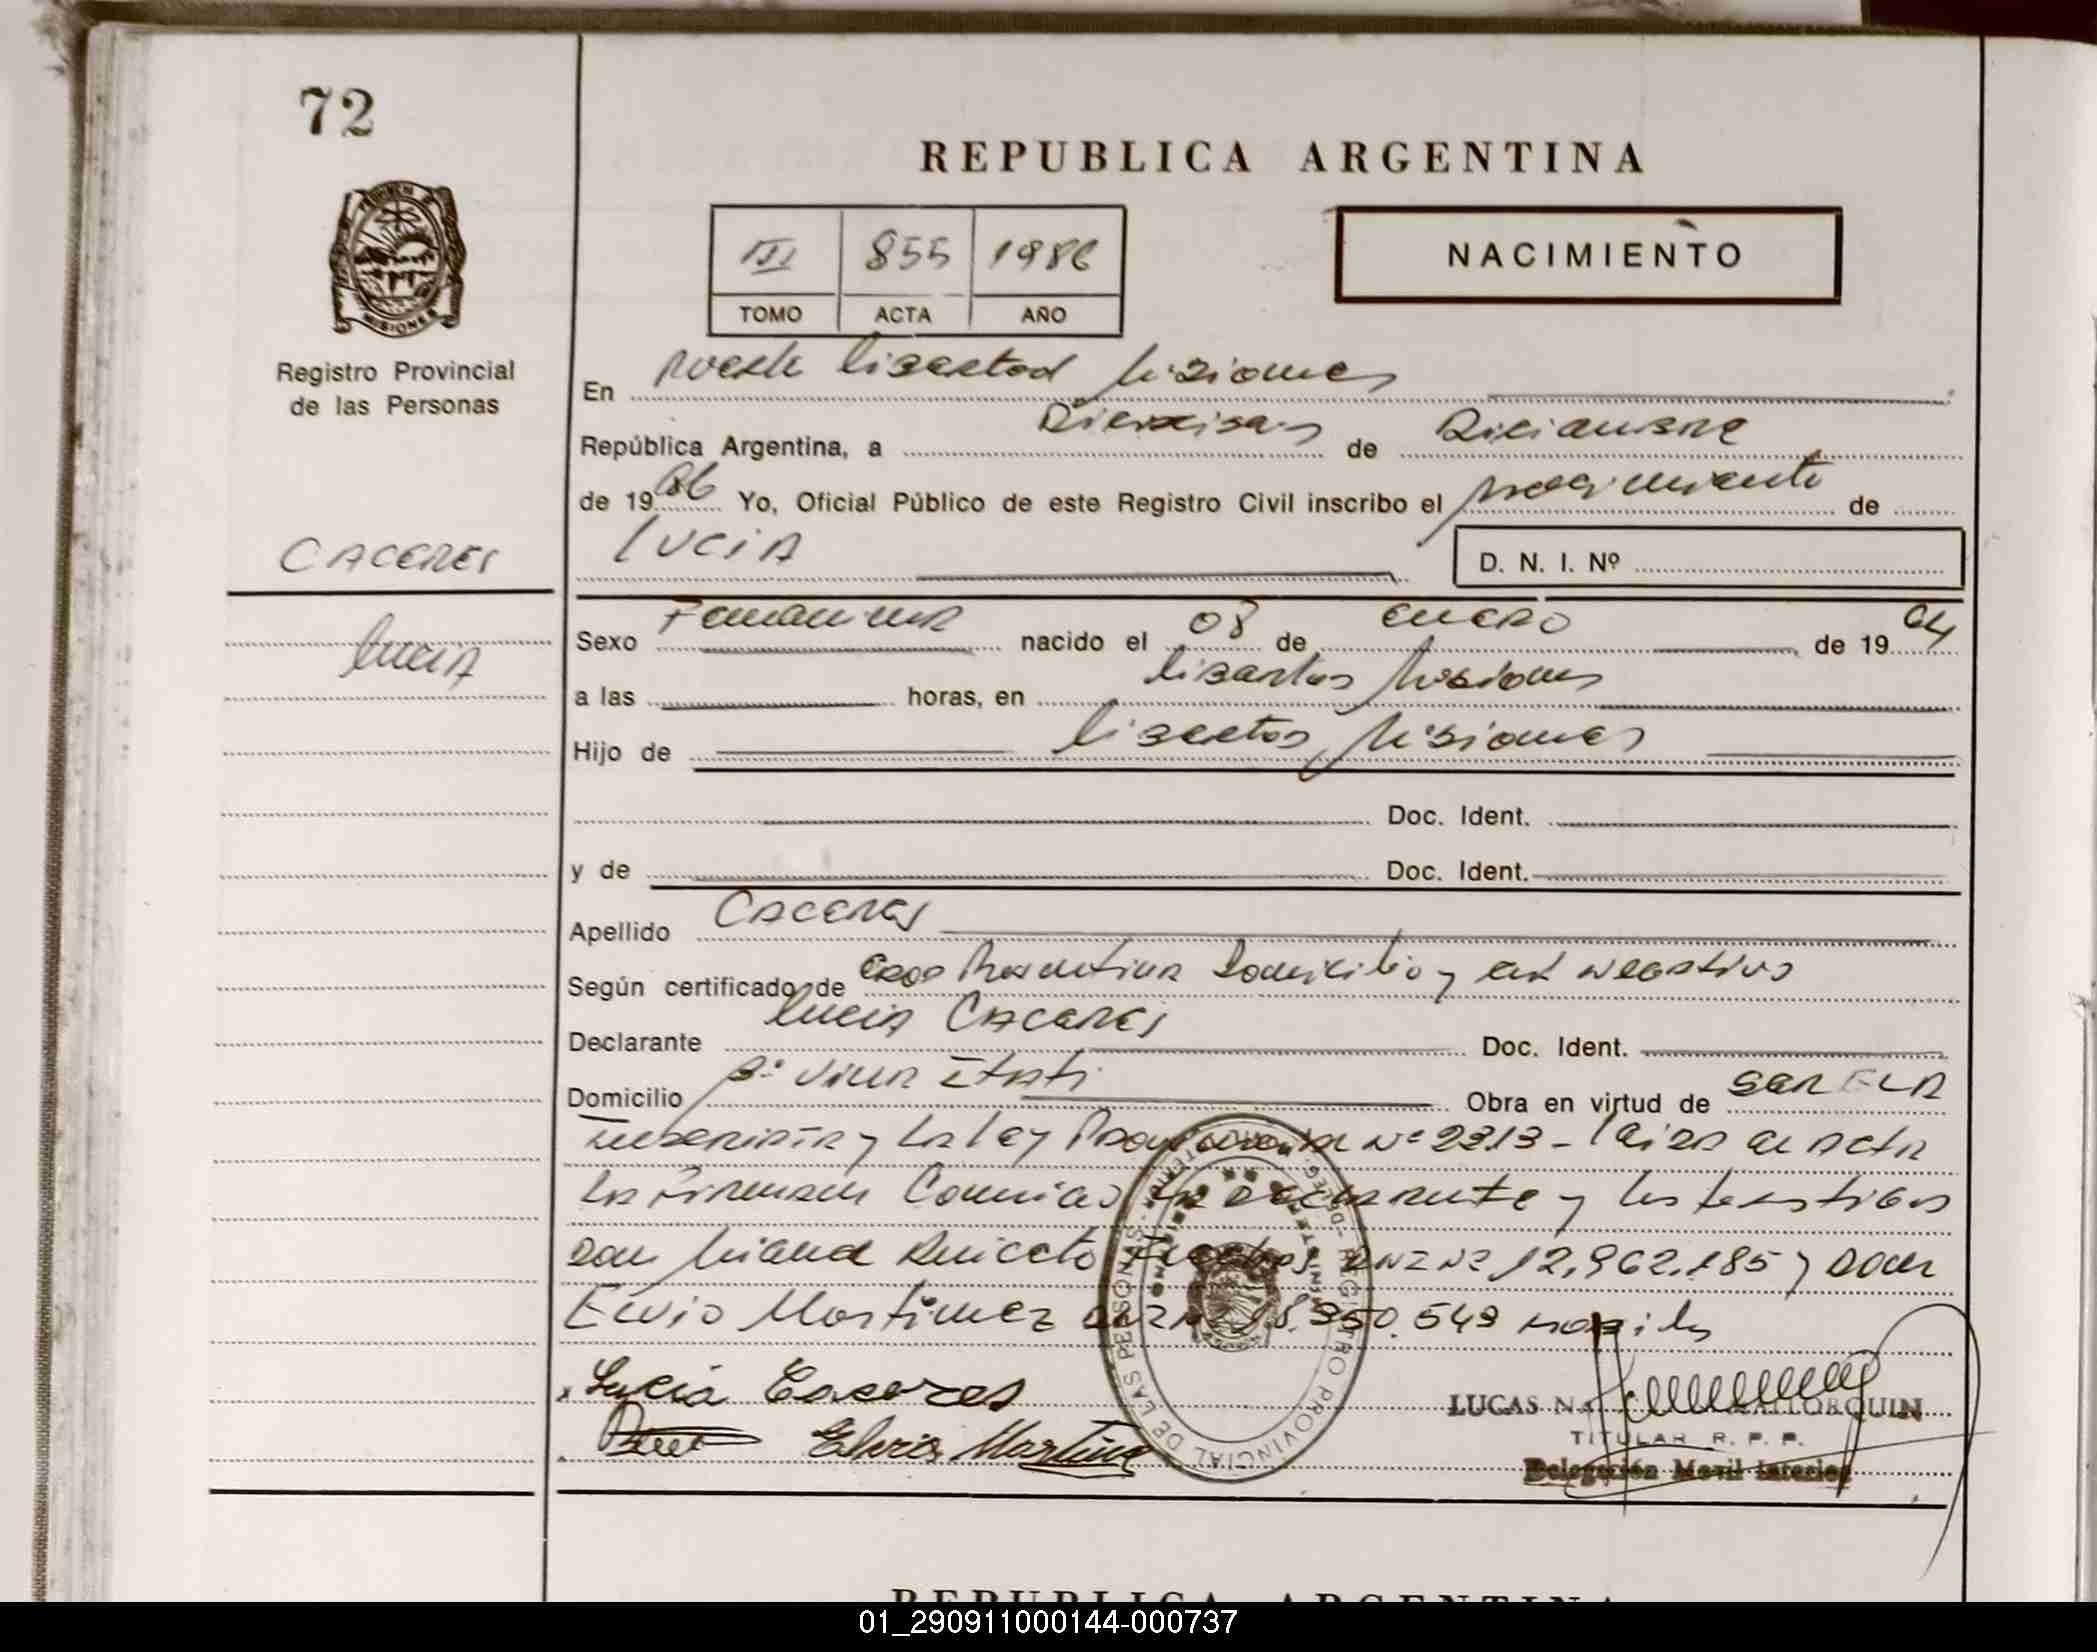 72
REPUBLICA ARGENTINA
III 855 1986
TOMO ACTA AÑO
NACIMIENTO
MISIONES
Registro Provincial
de las Personas
En Libertad Misiones
República Argentina, a de Diciembre
de 1986 Yo, Oficial Público de este Registro Civil inscribo el nacimiento de
CACERES
LUCIA
D. N. I. Nº
Lucia
Sexo Femenina nacido el 08 de enero de 19
a las horas, en Libertad Misiones
Hijo de Libertad, Misiones
Doc. Ident.
y de Doc. Ident.
Apellido CACERES
Según certificado de Domicilio y negativo
Declarante Lucia CACERES Doc. Ident.
Domicilio Bº Villa Itati Obra en virtud de
y la Ley Nº 2313 - Leida el Acta
la Firman Conmigo la declarante y los testigos
Don Aniceto DNI Nº 12.962.185 y Don
Elvio Martinez
Lucia Caceres
Elvio Martinez
REGISTRO PROVINCIAL DE LAS PERSONAS
LUCAS N. MALLORQUIN
TITULAR R. P. P.
Delegación Movil Interior
REPUBLICA ARGENTINA
01_290911000144-000737